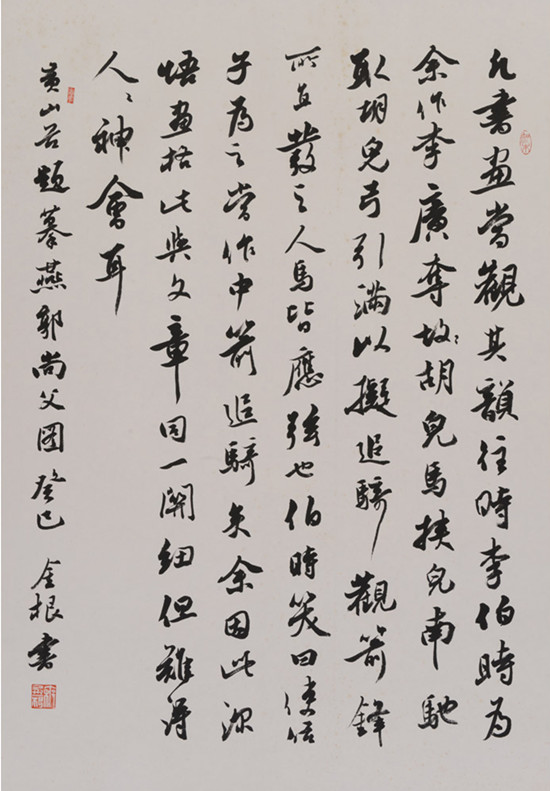 凡書畫當觀其韻往時李伯時為
余作李廣奪故胡兒馬挾兒南馳
取胡兒弓引滿以擬追騎觀箭鋒
所直發之人馬皆應弦也伯時笑曰使俗
子為之當作中箭追騎矣余因此深
悟畫格此與文章同一關細但難得
人〻神會耳
黃山谷題摹燕郭尚父圖癸巳 金根書